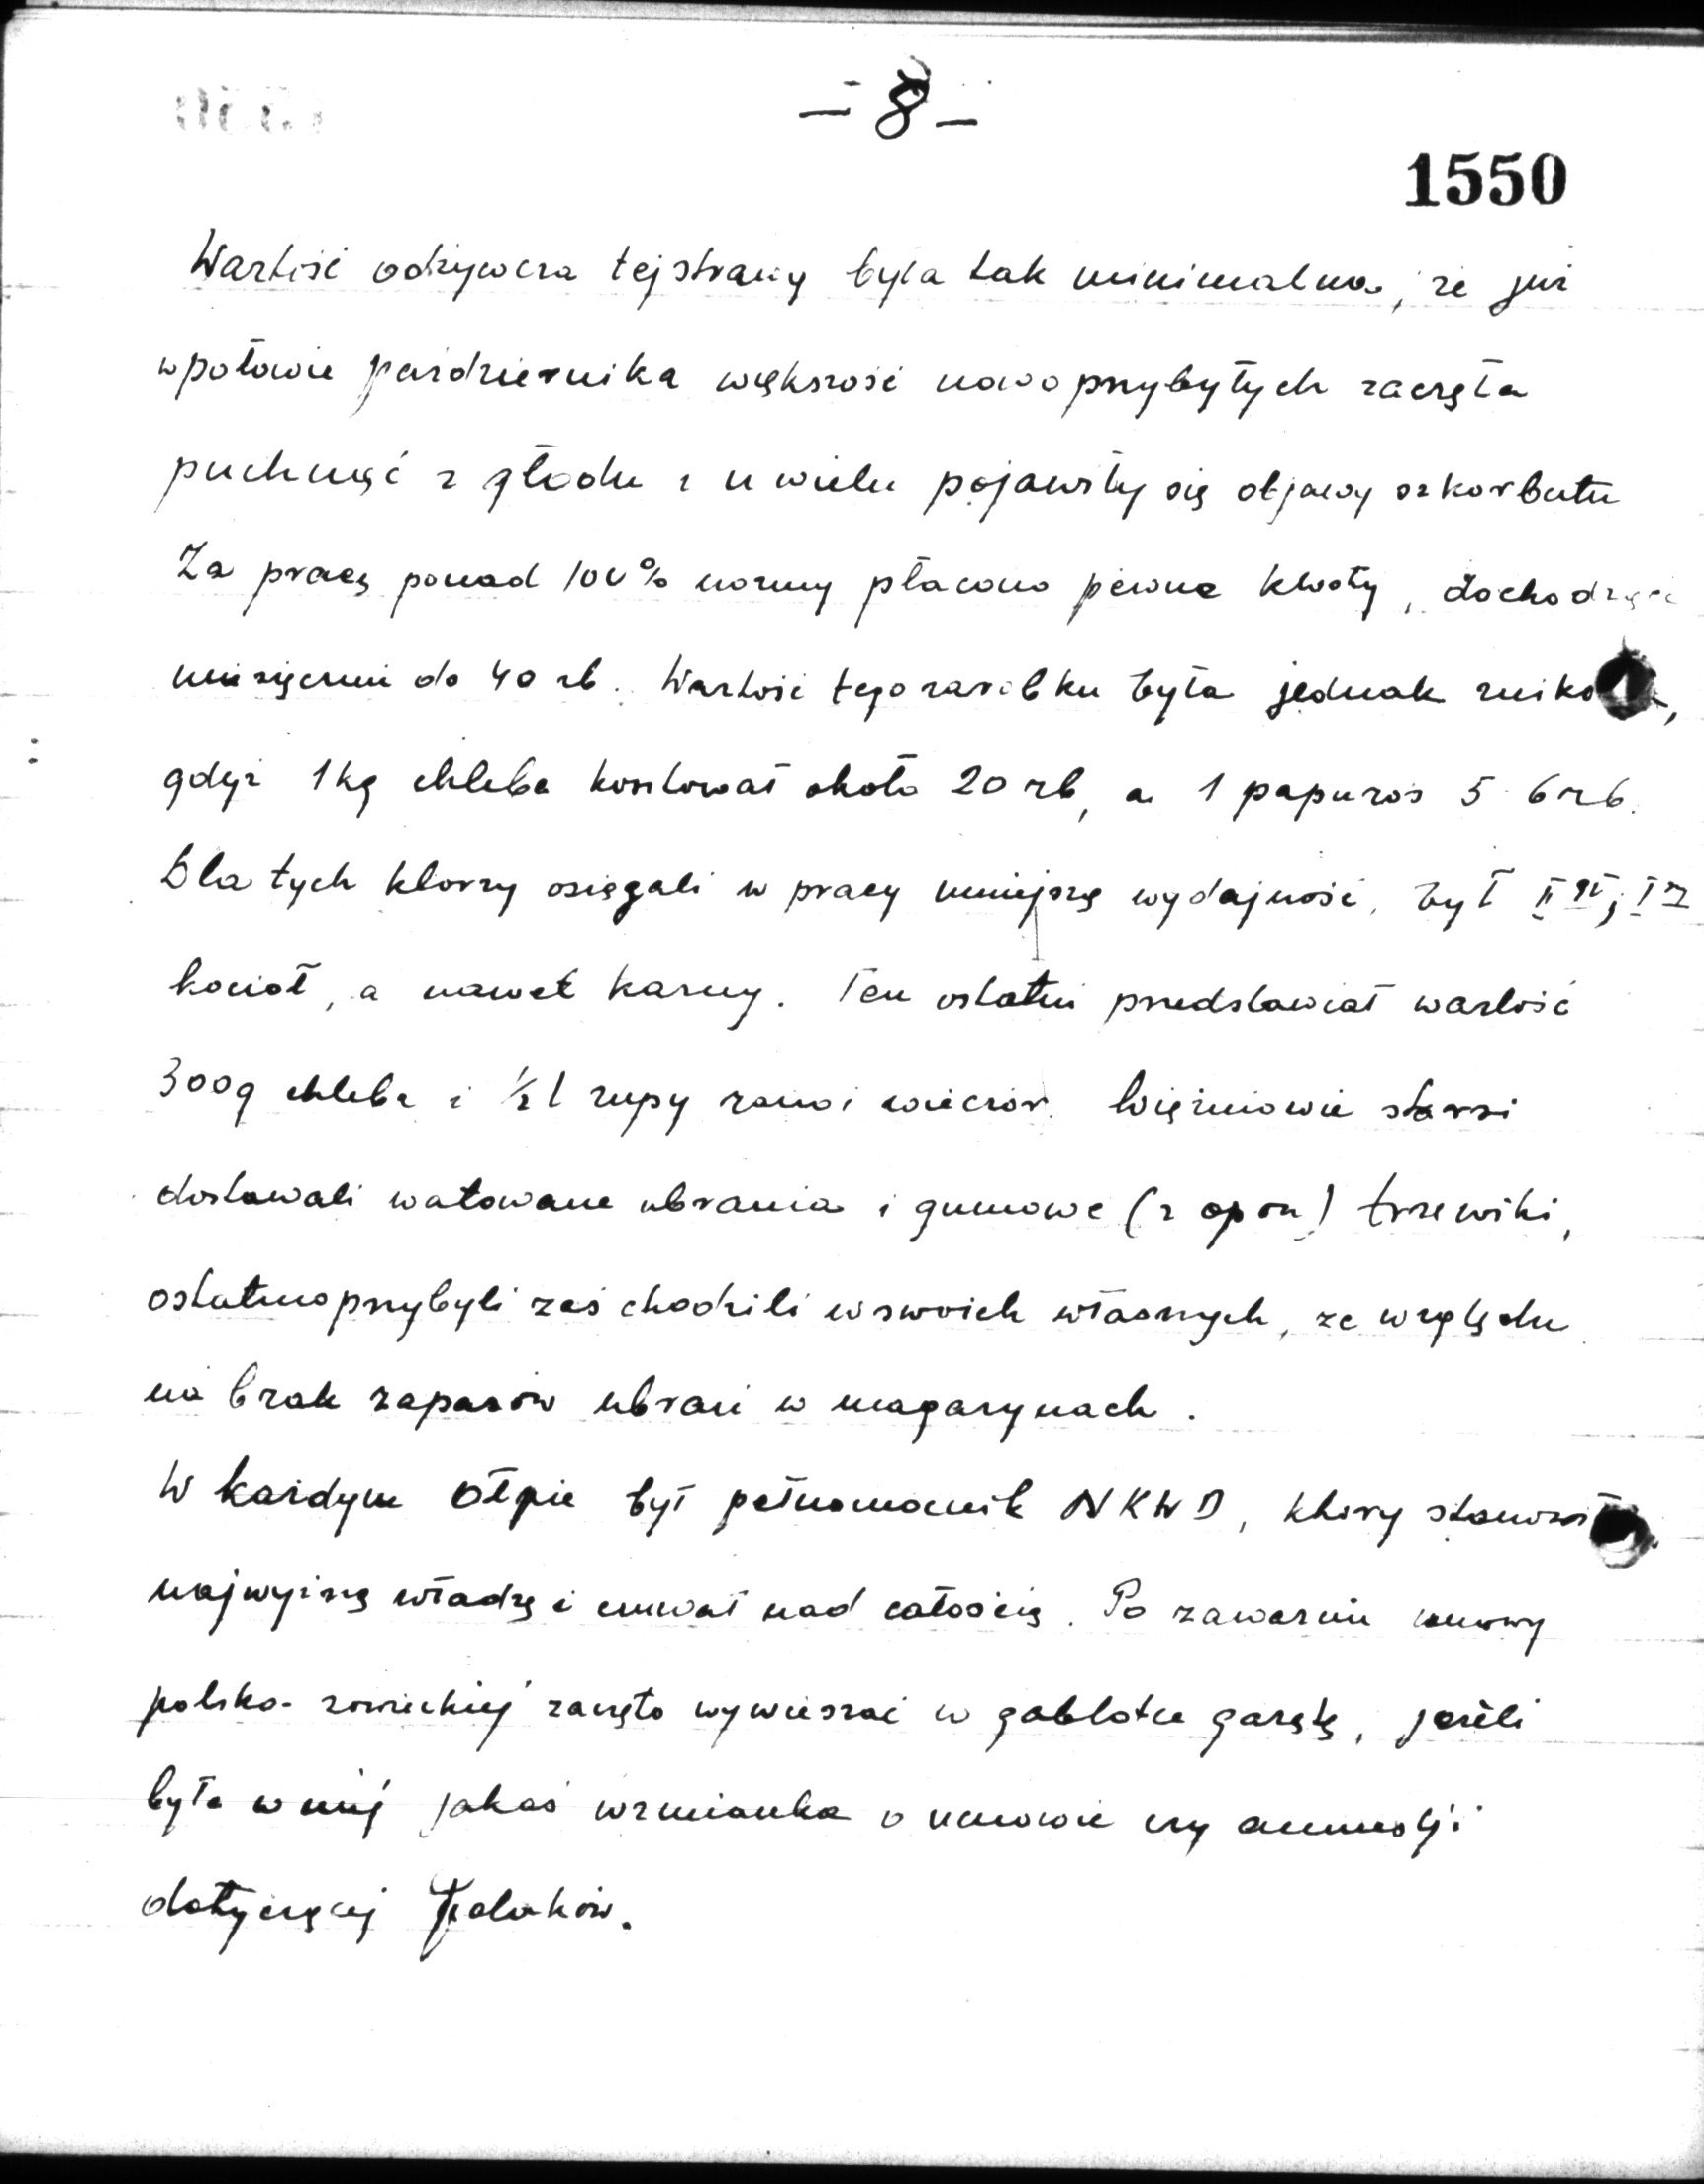 - 8 -
1550
Wartość odżywcza tej strawy była tak minimalna, że już
w połowie października większość nowoprzybyłych zaczęła
puchnąć z głodu i u wielu pojawiły się objawy szkorbutu
Za pracę ponad 100% normy płacono pewne kwoty, dochodzące
miesięcznie do 40 rb. Wartość tego zarobku była jednak
gdyż 1 kg chleba kosztował około 20 rb, a 1 papieros 5 6 rb.
Dla tych którzy osięgali w pracy mniejszą wydajność, był
kocioł, a nawet karny. Ten ostatni przedstawiał wartość
300g chleba i ½ l zupy rano i wieczór. Więźniowie starsi
dostawali watowane ubrania i gumowe (z opon) trzewiki,
ostatnioprzybyli zaś chodzili w swoich własnych, ze względu
na brak zapasów ubrań w magazynach.
W każdym Ołpie był pełnomocnik NKWD, który stanowił
najwyższą władzę i czuwał nad całością. Po zawarciu umowy
polsko-sowieckiej zaczęto wywieszać w gablotce gazetę, jeżeli
była w niej jakaś wzmianka o umowie czy amnestji
dotyczącej Polaków.